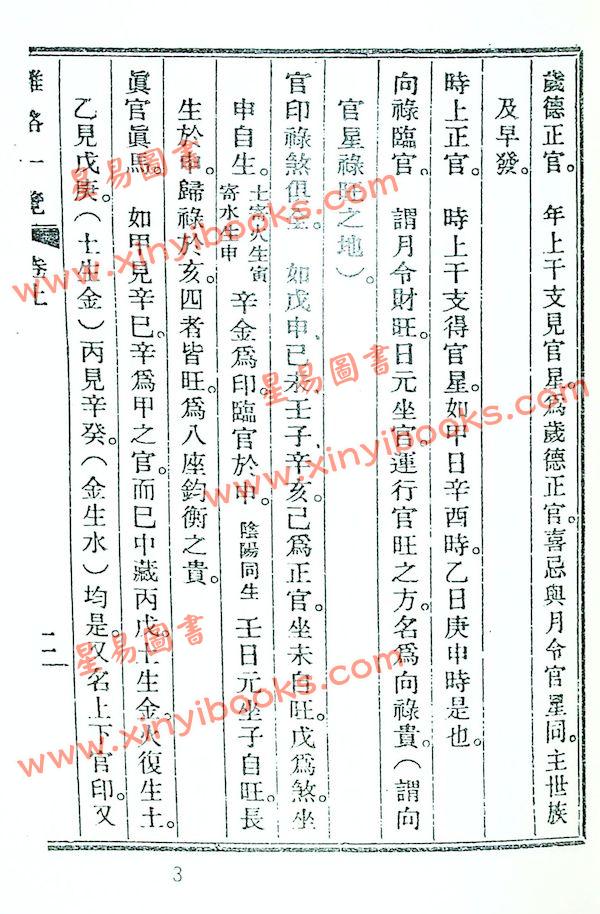 歲德正官。　年上干支見官星。爲歲德正官。喜忌與月令官星同。主世族
及早發。
時上正官。　時上干支得官星。如甲日辛酉時。乙日庚申時是也。
向祿臨官。　謂月令財旺。日元坐官。運行官旺之方。名爲向祿貴。（謂向
官星祿旺之地）。
官印祿煞俱全。　如戊申己未壬子辛亥。己爲正官。坐未自旺。戊爲煞。坐
申自生。土寄火生寅
寄水生申　辛金爲印。臨官於申。陰陽同生　壬日元坐子自旺。長
生於申。歸祿於亥。四者皆旺。爲八座鈞衡之貴。
眞官眞馬。　如甲見辛巳。辛爲甲之官。而巳中藏丙戊。土生金。火復生土。
乙見戊庚。（土生金）丙見辛癸。（金生水）均是。又名上下官印。又
一覽　卷上
二一
3
星易圖書
www.xinyibooks.com
星易圖書
www.xinyibooks.com
星易圖書
www.xinyibooks.com